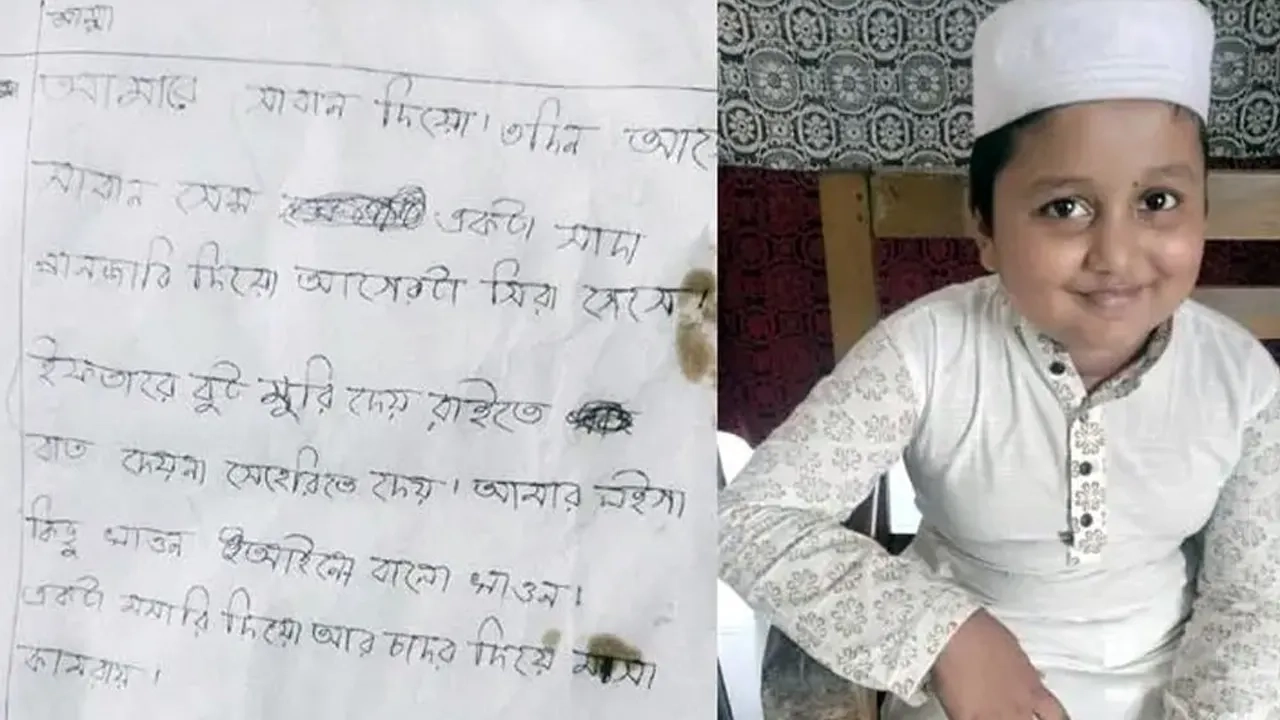 আম্মা
আমারে সাবান দিয়ো। ৩দিন আগে
সাবান সেস একটা সাদা
পানজাবি দিয়ো আগেরটা সিরা গেসে।
ইফতারে বুট মুরি দেয় রাইতে
বাত দেয়না সেহেরিতে দেয়। আমার লইগা
কিছু খাওন আইনো বালো খাওন।
একটা মসারি দিয়ো আর চাদর দিয়ো মসা
কামরায়।